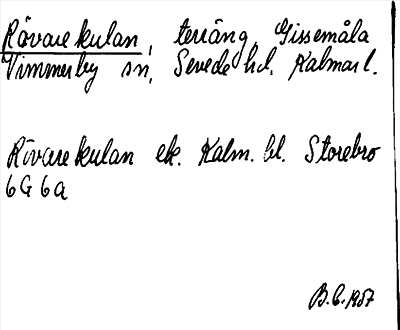 Rövarekulan, terräng, Gissemåla
Vimmerby sn, Sevede hd, Kalmar l.
Rövarekulan ek. Kalm. bl. Storebro
6G 6a
B.C. 1957